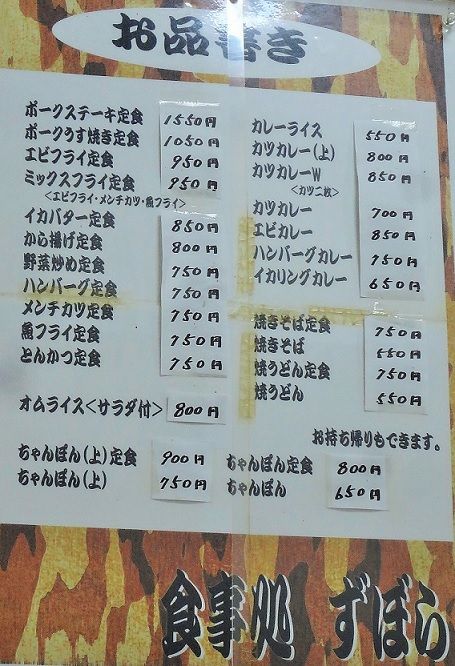 お品書き
ポークステーキ定食 1550円
ポークうす焼き定食 1050円
エビフライ定食 950円
ミックスフライ定食 950円
<エビフライ・メンチカツ・魚フライ>
イカバター定食 850円
から揚げ定食 800円
野菜炒め定食 750円
ハンバーグ定食 750円
メンチカツ定食 750円
魚フライ定食 750円
とんかつ定食 750円
オムライス<サラダ付> 800円
ちゃんぽん(上)定食 900円
ちゃんぽん(上) 750円
カレーライス 550円
カツカレー(上) 800円
カツカレーW 850円
<カツ二枚>
カツカレー 700円
エビカレー 850円
ハンバーグカレー 750円
イカリングカレー 650円
焼きそば定食 750円
焼きそば 550円
焼うどん定食 750円
焼うどん 550円
お持ち帰りもできます。
ちゃんぽん定食 800円
ちゃんぽん 650円
食事処 ずぼら